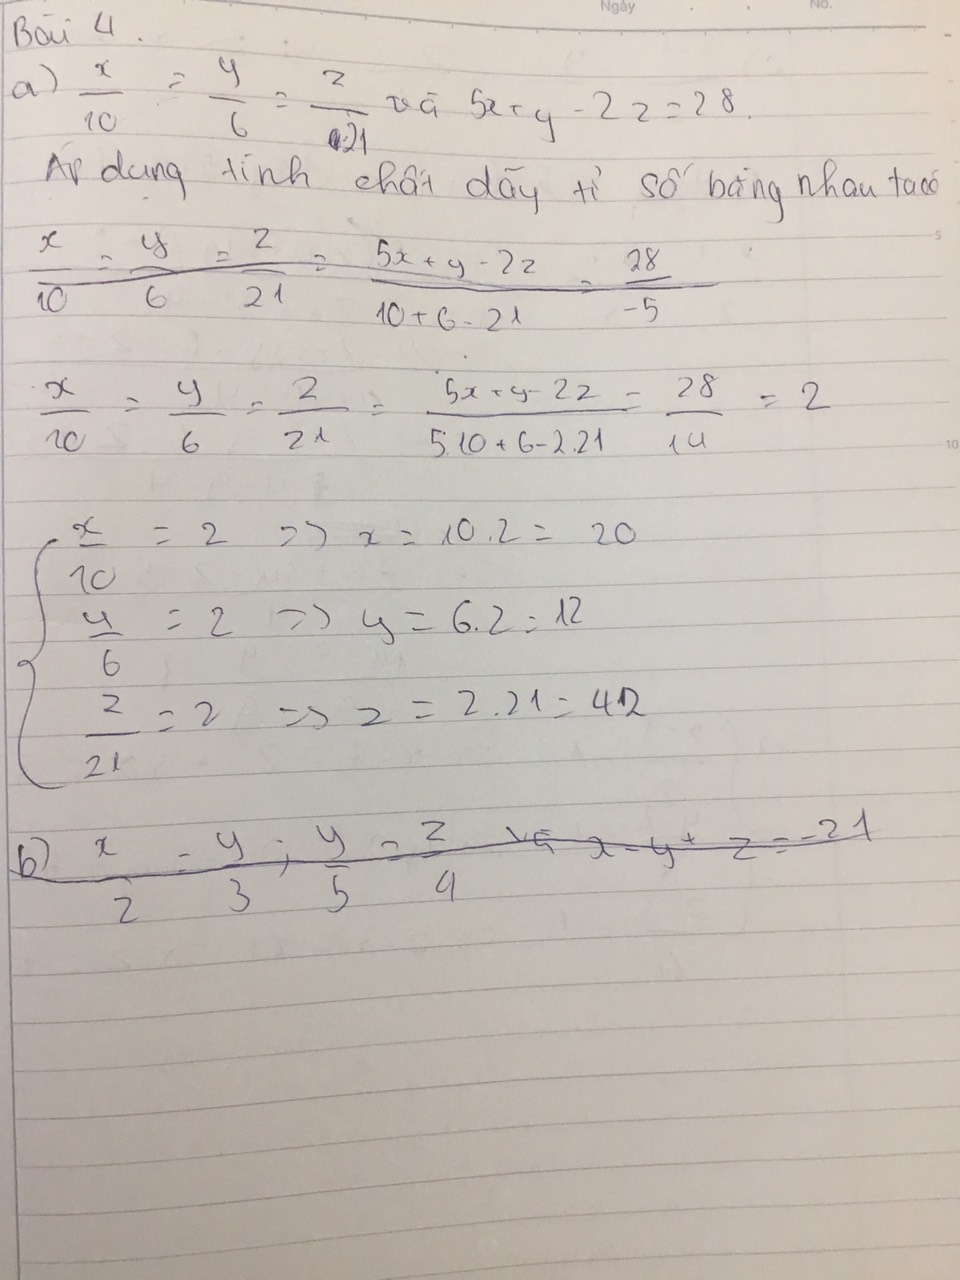 Ngày No.
Bài 4.
a) x/10 = y/6 = z/21 và 5x+y-2z=28.
Áp dụng tính chất dãy tỉ số bằng nhau ta có
x/10 = y/6 = z/21 = 5x+y-2z/10+6-21 = 28/-5
x/10 = y/6 = z/21 = 5x+y-2z/5.10+6-2.21 = 28/14 = 2
x/10 = 2 => x = 10.2 = 20
y/6 = 2 => y = 6.2 = 12
z/21 = 2 => z = 2.21 = 42
b) x/2 = y/3 ; y/5 = z/4 và x-y+z=-21
5
10